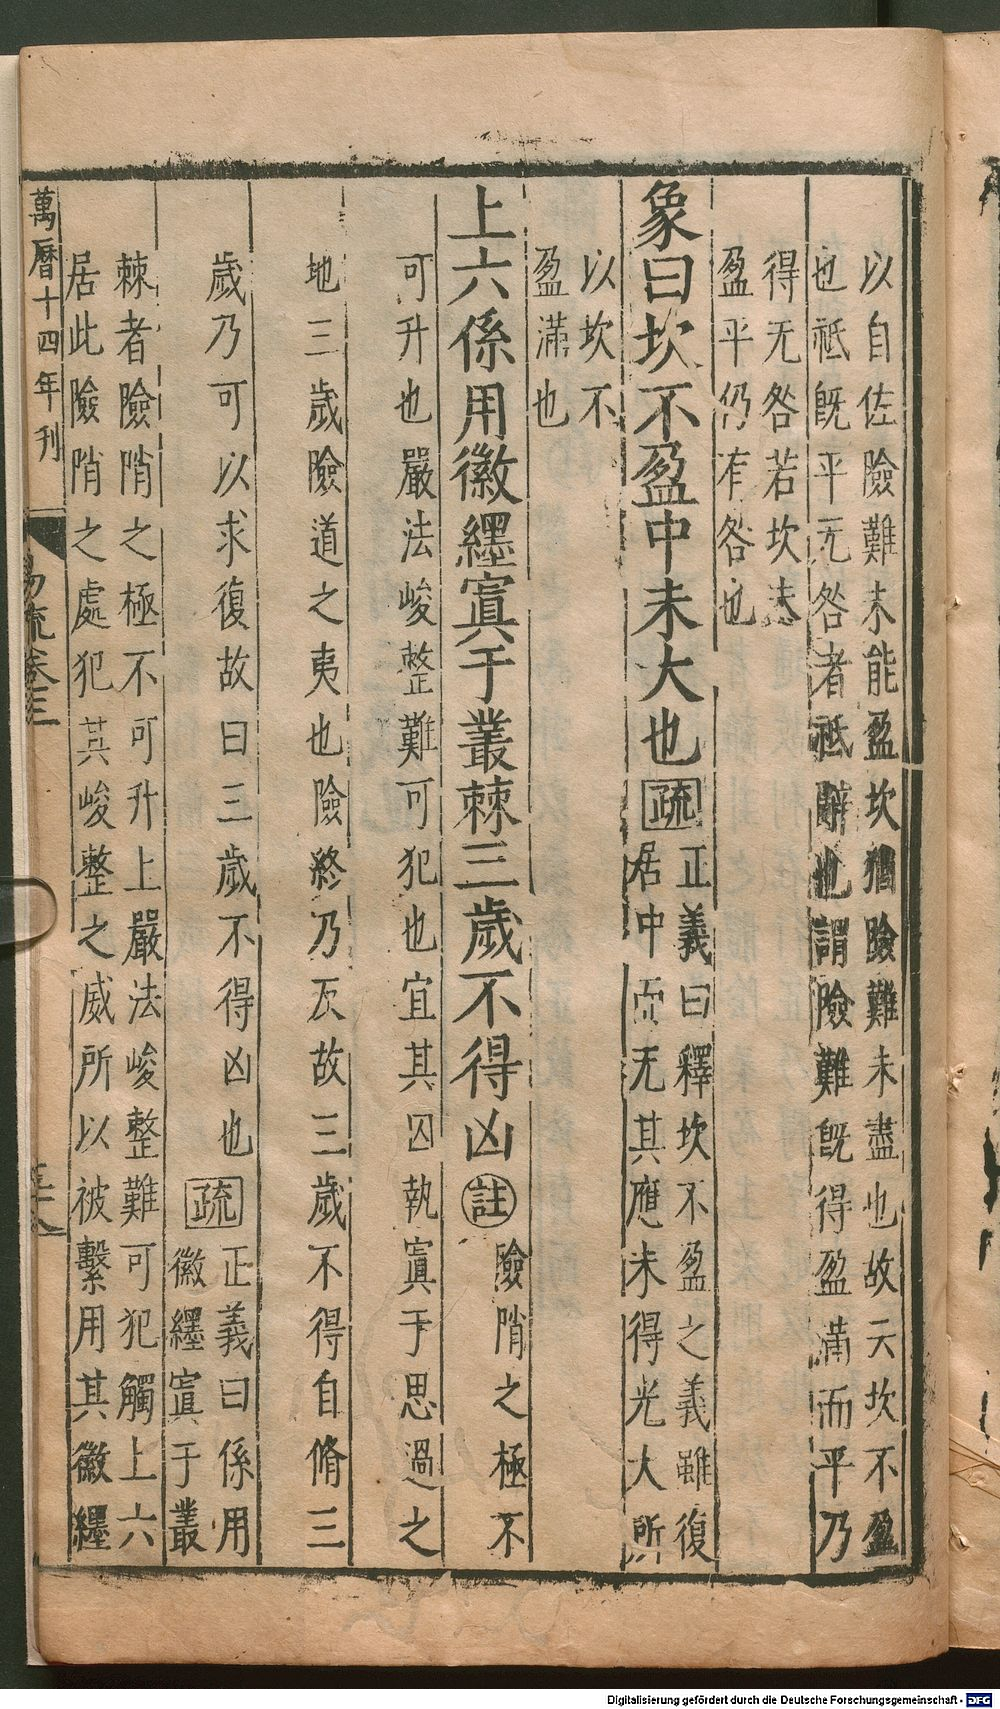 以自佐險難未能盈坎猶險難未盡也故云坎不盈
也祗旣平无咎者祗辭也謂險難旣得盈滿而平乃
得无咎若坎未
盈平仍有咎也
象曰坎不盈中未大也疏
正義曰釋坎不盈之義雖復
居中而无其應未得光大所
以坎不
盈滿也
上六係用徽纆寘于叢棘三歲不得凶註險陗之極不
可升也嚴法峻整難可犯也宜其囚執寘于思過之
地三歲險道之夷也險終乃反故三歲不得自脩三
歲乃可以求復故曰三歲不得凶也疏
正義曰係用
徽纆寘于叢
棘者險陗之極不可升上嚴法峻整難可犯觸上六
居此險陗之處犯其峻整之威所以被繫用其徽纆
萬曆十四年刊
易疏卷三
Digitalisierung gefördert durch die Deutsche Forschungsgemeinschaft - DFG